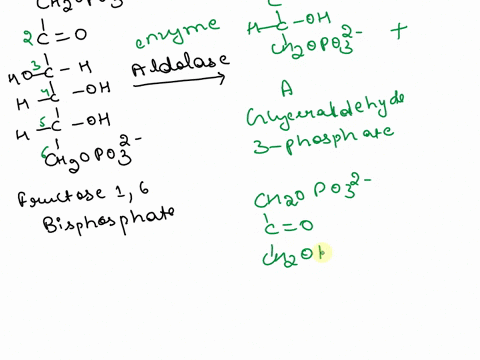 CH2O PO3 2-
2 C = O
3
HO - C - H
4
H - C - OH
5
H - C - OH
6
CH2OPO3 2-
Fructose 1, 6
Bisphosphate
enzyme
Aldolase
C
H - C - OH
CH2OPO3 2-
+
A
Glyceraldehyde
3-phosphate
CH2O PO3 2-
C = O
CH2O